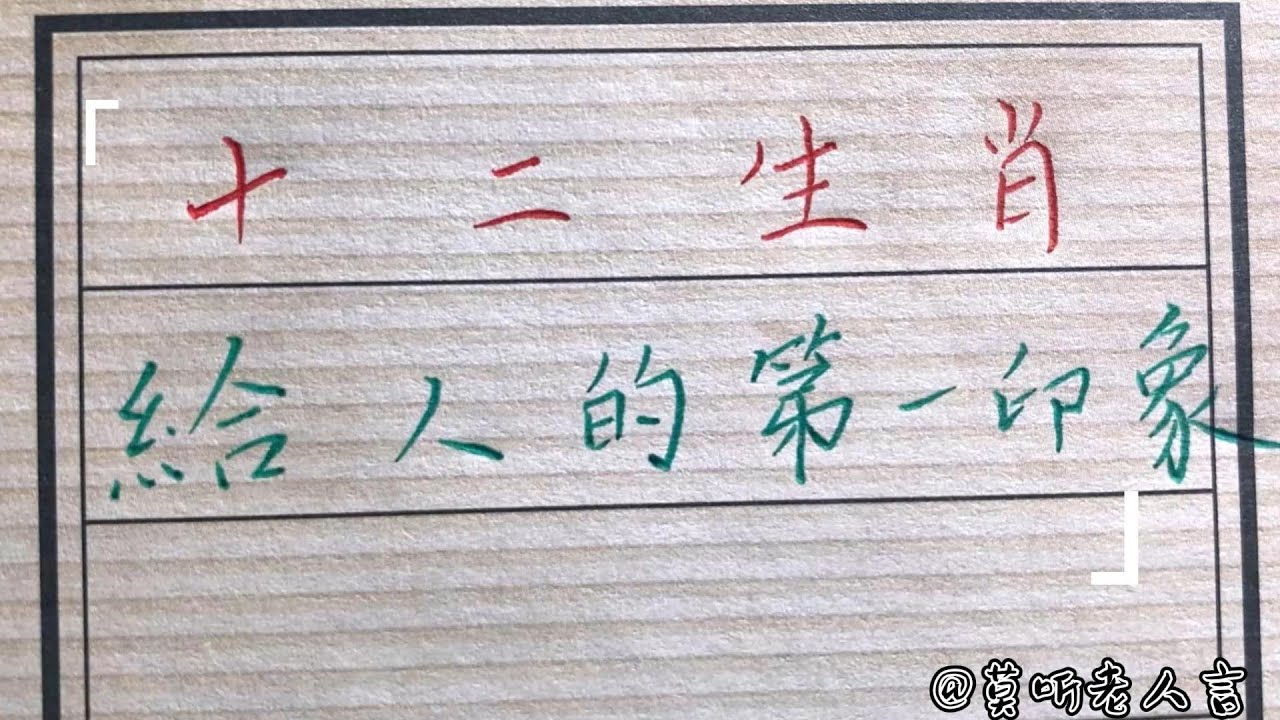 「十二生肖
給人的第一印象」
@莫听老人言